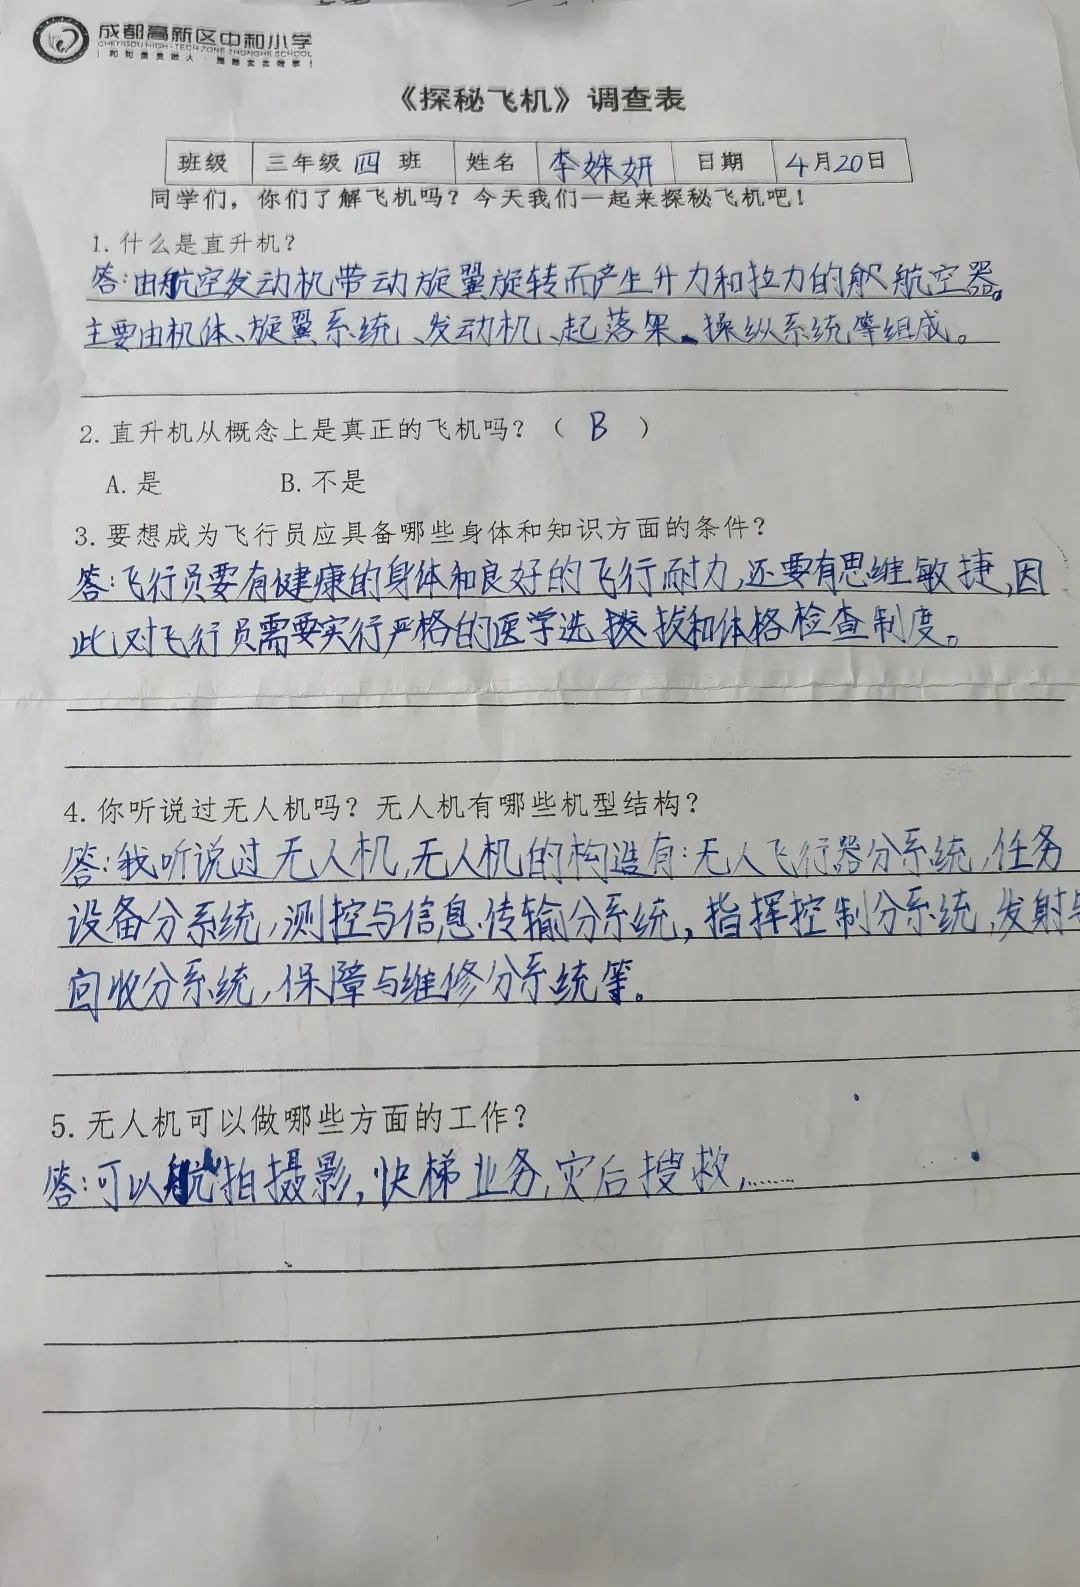 成都高新区中和小学
CHENGDU HIGH-TECH ZONE ZHONGHE SCHOOL
《探秘飞机》调查表
班级 三年级 四 班 姓名 李姝妍 日期 4月20日
同学们，你们了解飞机吗？今天我们一起来探秘飞机吧！
1. 什么是直升机？
答：由航空发动机带动旋翼旋转而产生升力和拉力的航空器。
主要由机体、旋翼系统、发动机、起落架、操纵系统等组成。
2. 直升机从概念上是真正的飞机吗？（ B ）
A. 是 B. 不是
3. 要想成为飞行员应具备哪些身体和知识方面的条件？
答：飞行员要有健康的身体和良好的飞行耐力，还要有思维敏捷，因
此，对飞行员需要实行严格的医学选拔和体格检查制度。
4. 你听说过无人机吗？无人机有哪些机型结构？
答：我听说过无人机，无人机的构造有：无人飞行器分系统，任务
设备分系统，测控与信息传输分系统，指挥控制分系统，发射与
回收分系统，保障与维修分系统等。
5. 无人机可以做哪些方面的工作？
答：可以航拍摄影，快梯业务，灾后搜救，……